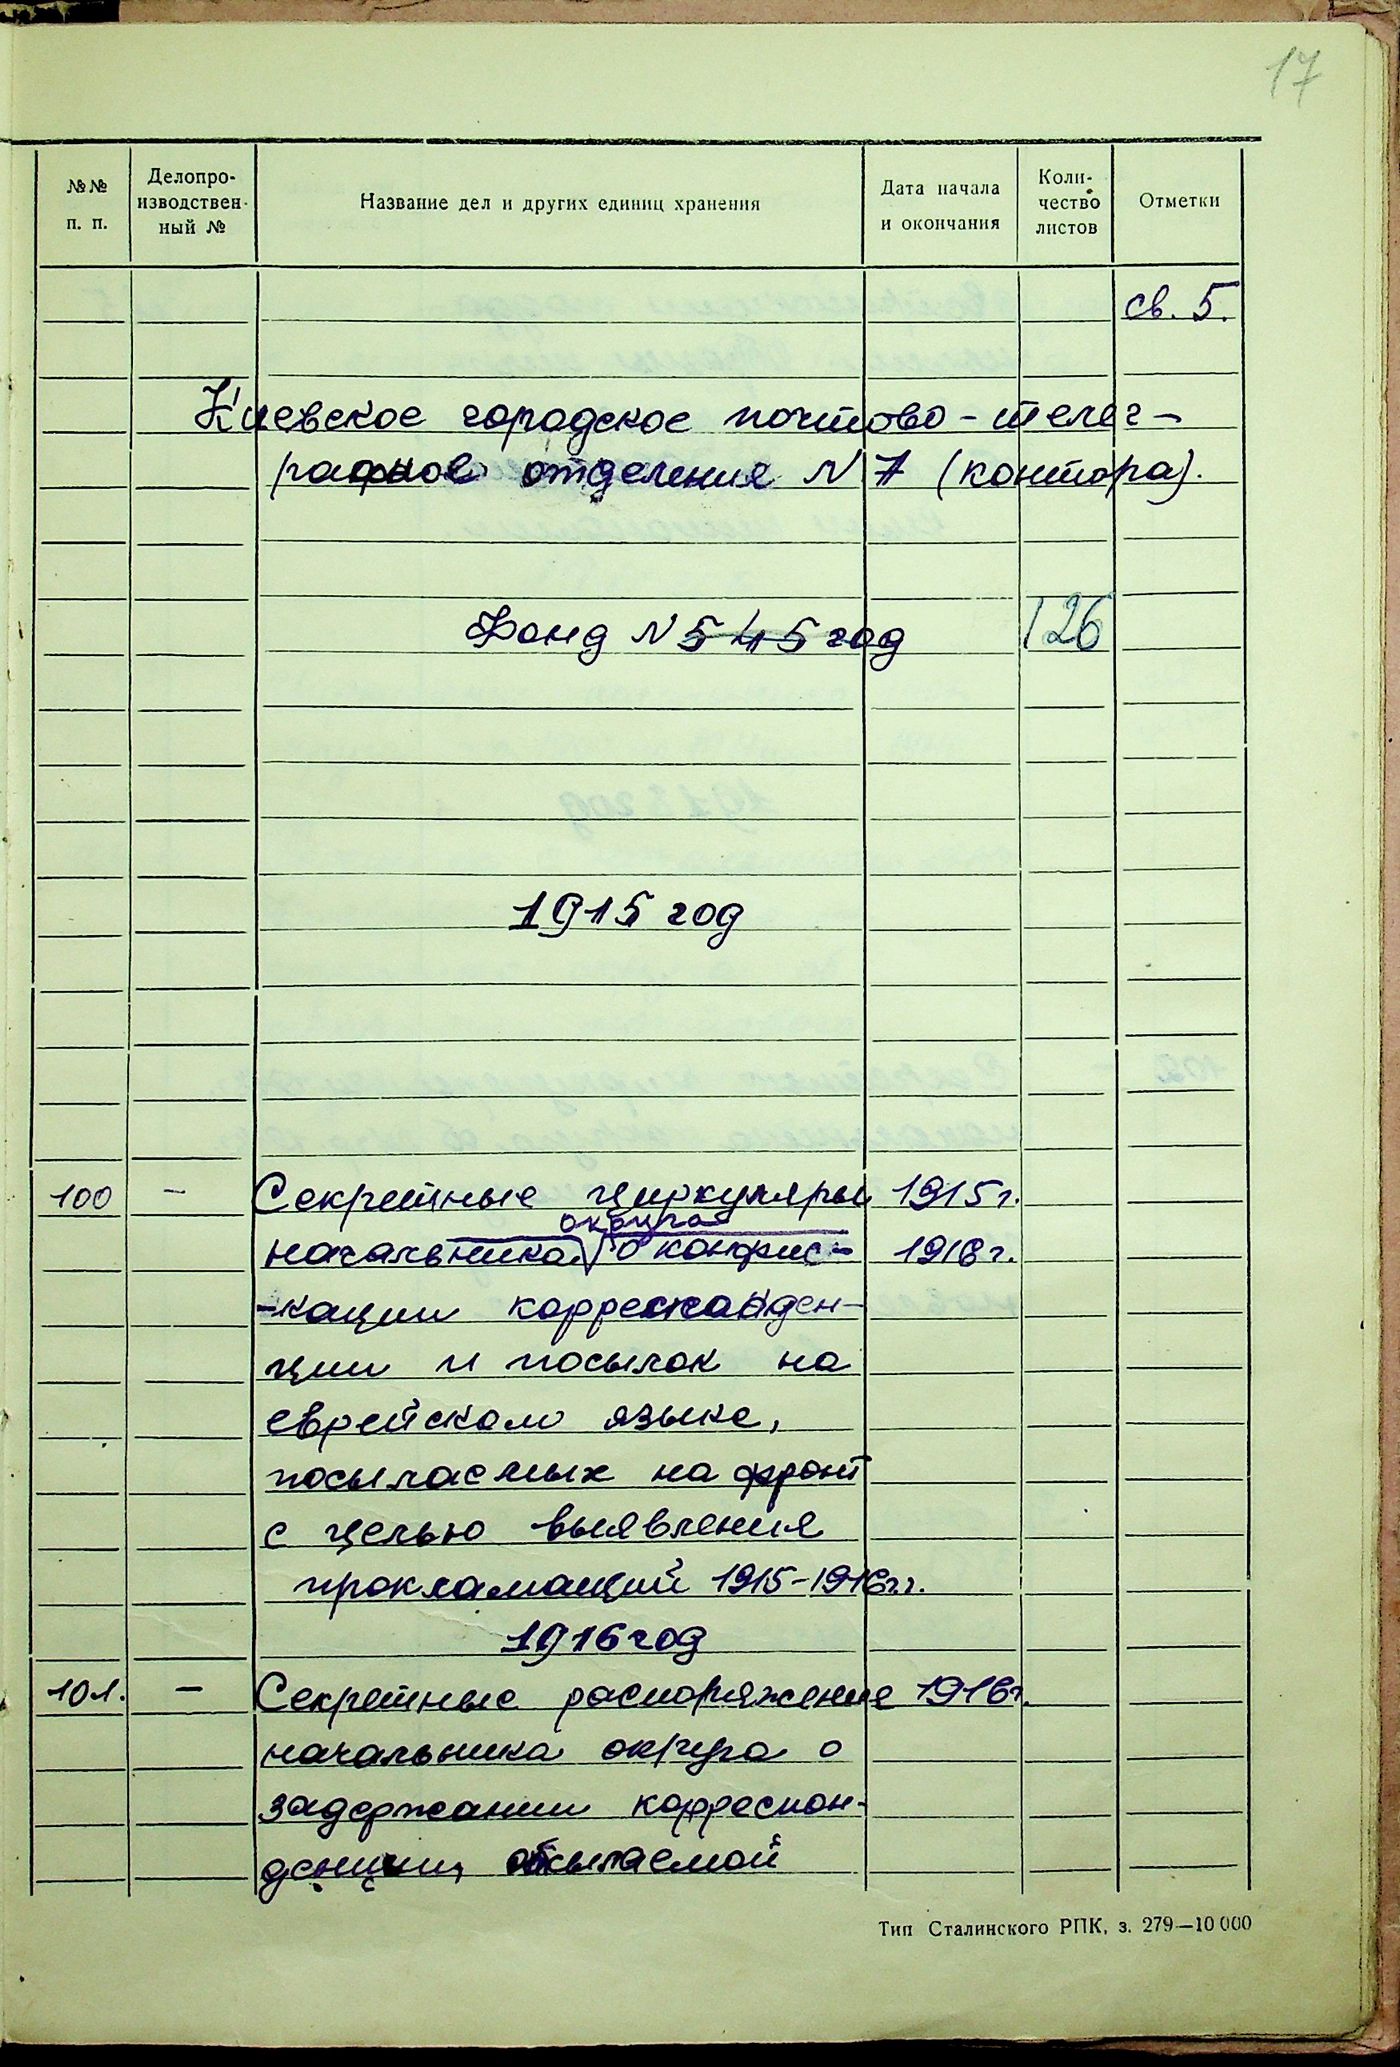 17
№№ п. п.
Делопро-
изводствен-
ный №
Название дел и других единиц хранения
Дата начала
и окончания
Коли-
чество
листов
Отметки
св. 5.
Киевское городское почтово-телег-
рафное отделение N 7 (контора).
Фонд N 545 год 126
1915 год
100 – Секретные циркуляры 1915 г.
округа
начальника о конфис- 1916 г.
-кации корреспонден-
ции и посылок на
еврейском языке,
посылаемых на фронт
с целью выявления
прокламаций 1915-1916 г.г.
1916 год
101. – Секретные распоряжение 1916 г.
начальника округа о
задержании корреспон-
денции, отсылаемой
Тип Сталинского РПК, з. 279—10 000